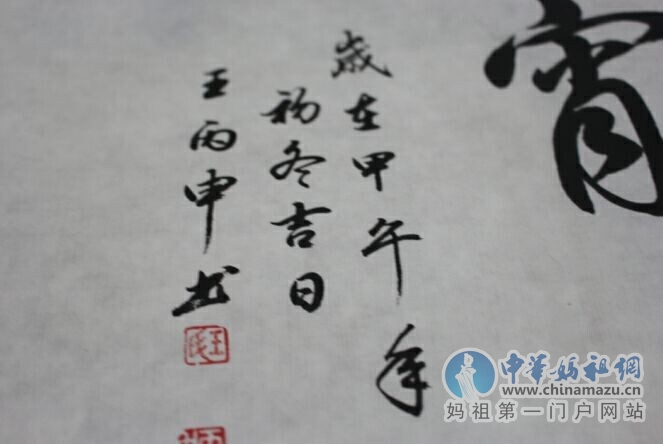 宵
歲在甲午年
初冬吉日
王丙申书
中華媽祖網
www.chinamazu.cn
妈祖第一门户网站